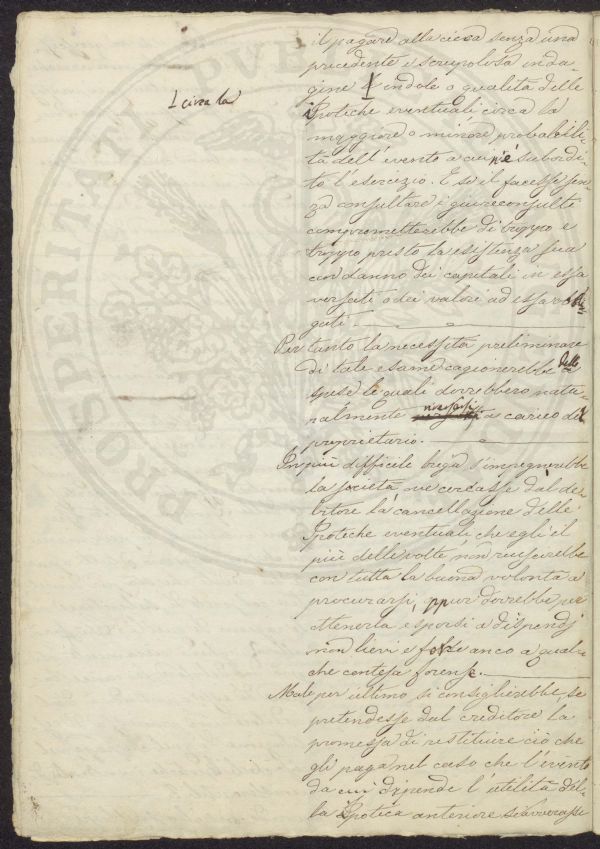 il pagare alla cieca senza una
precedente e scrupolosa inda-
gine L indole o qualità delle
L circa la
Ipoteche eventuali, circa la
maggiore o minore probabili-
tà dell'evento a cui n'è subordi-
to l'esercizio. E se il facesse sen-
za consultare i giureconsulti
comprometterebbe di troppo e
troppo presto la esistenza sua
con danno dei capitali in essa
versati o dei valori ad essa obbli-
gati.
Per tanto la necessità preliminare
di tale esame cagionerebbe delle
spese le quali dovrebbero natu-
ralmente riversarsi a carico del
proprietario.
In più difficile briga s'impegnerebbe
la società ove cercasse dal de-
bitore la cancellazione delle
Ipoteche eventuali che egli il
più delle volte non riuscirebbe
con tutta la buona volontà a
procurarsi, oppur dovrebbe per
ottenerla esporsi a dispendj
non lievi e forse anco a qual-
che contesa forense.
Male per ultimo si consiglierebbe, se
pretendesse dal creditore la
promessa di restituire ciò che
gli paga nel caso che l'evento
da cui dipende l'utilità del-
la Ipoteca anteriore si avverasse
PROSPERITATI PUB